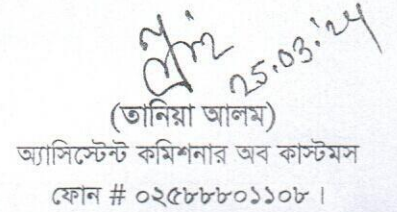 25.03.'24
(তানিয়া আলম)
অ্যাসিস্টেন্ট কমিশনার অব কাস্টমস
ফোন # ০২৫৮৮৮০১১০৮।